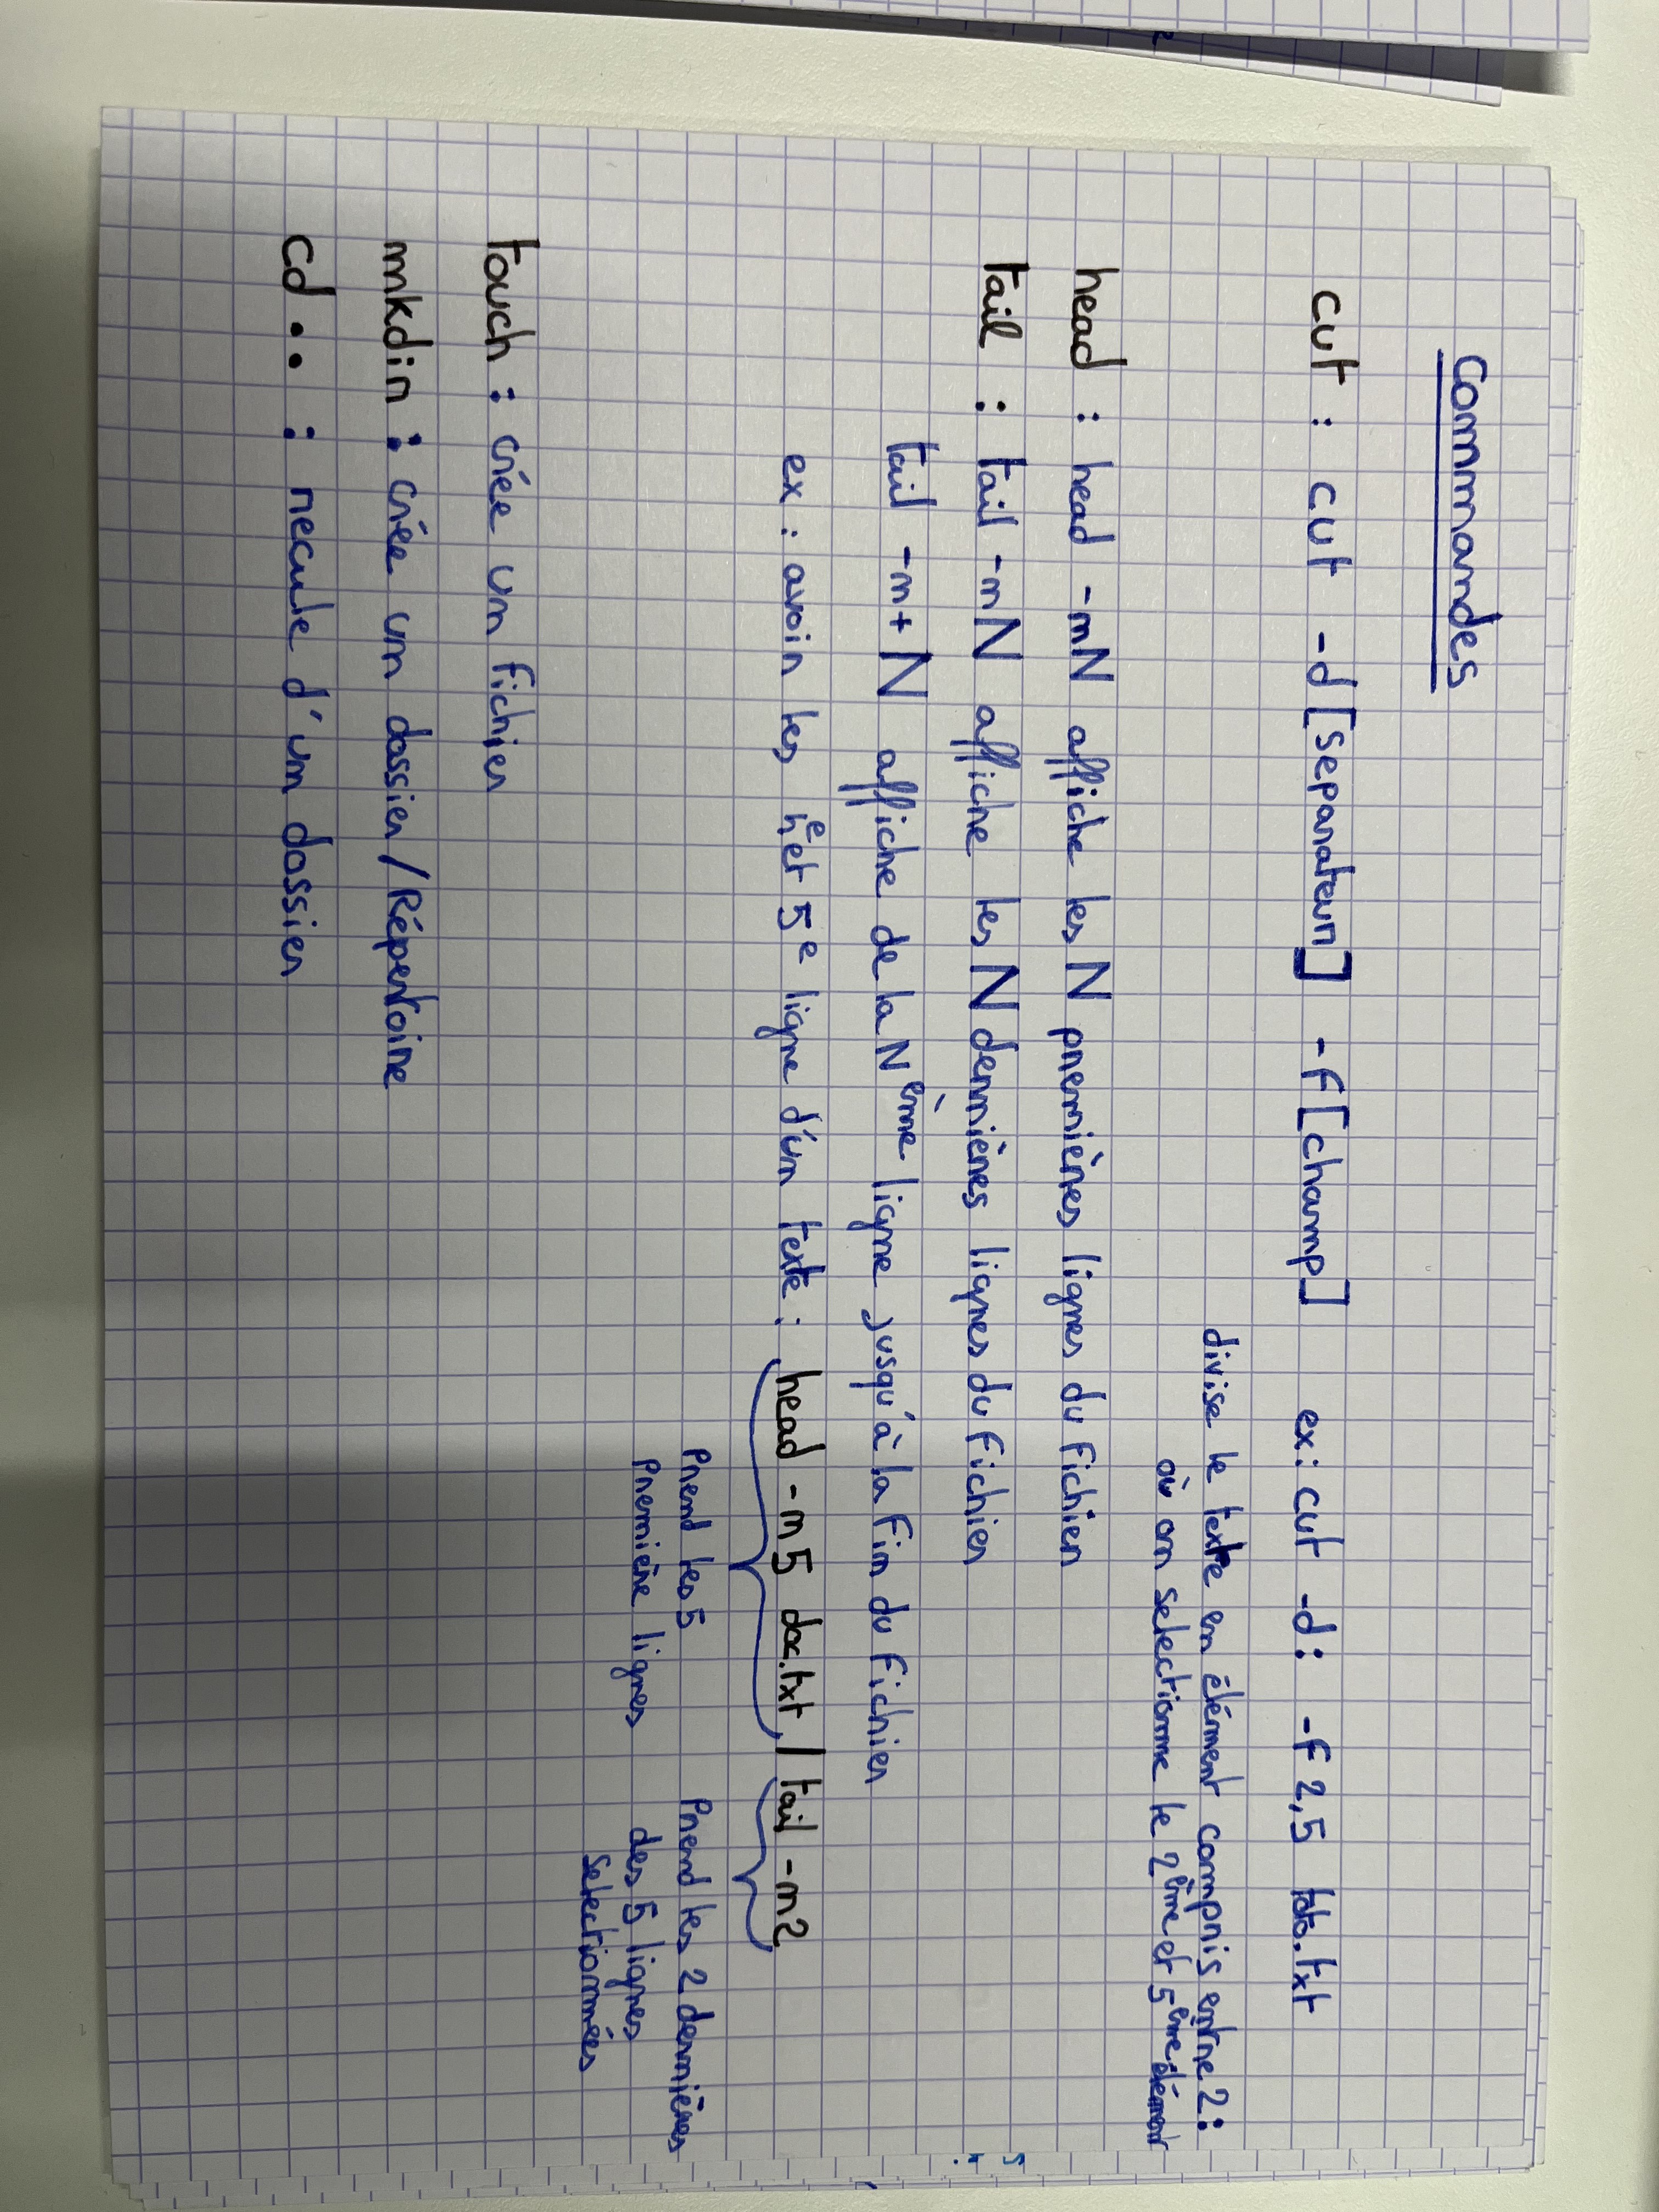 Commandes
cut : cut -d [separateur] -f [champ] ex: cut -d: -f 2,5 toto.txt
divise le texte en élément compris entre 2 :
où on selectionne le 2ème et 5ème élément
head : head -nN affiche les N premières lignes du fichier
tail : tail -nN affiche les N dernnières lignes du fichier
tail -n+N affiche de la Nème ligne jusqu'à la fin du fichier
ex : avoir les 4e et 5e ligne d'un texte : head -n5 doc.txt | tail -n2
Prend les 5 Prend les 2 dernnières
première lignes des 5 lignes
selectionnées
touch : crée un fichier
mkdir : crée un dossier / Répertoire
cd .. : recule d'un dossier